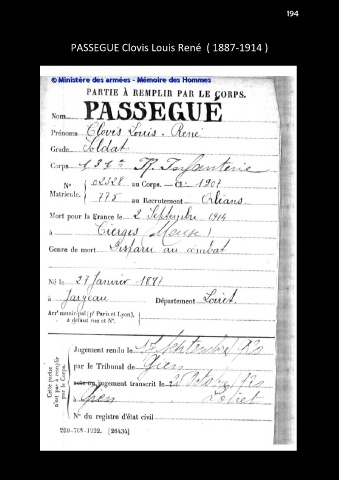 194
PASSEGUE Clovis Louis René ( 1887-1914 )
© Ministère des armées - Mémoire des Hommes
PARTIE À REMPLIR PAR LE CORPS.
Nom PASSEGUÉ
Prénoms Clovis Louis - René
Grade Soldat
Corps 131e R. Infanterie
N° Matricule. { 02328 au Corps. — Cl. 1907
775 au Recrutement Orléans
Mort pour la France le 2 Septembre 1914
à Cierges (Meuse)
Genre de mort Disparu au combat
Né le 27 Janvier 1887
à Jargeau Département Loiret
Arrt municipal (pr Paris et Lyon),
à défaut rue et N°.
Cette partie n'est pas à remplir par le Corps.
Jugement rendu le 17 Septembre 1920
par le Tribunal de Gien
jugement transcrit le Octobre 1920
à Gien Loiret
N° du registre d'état civil
260-708-1922. [26434]